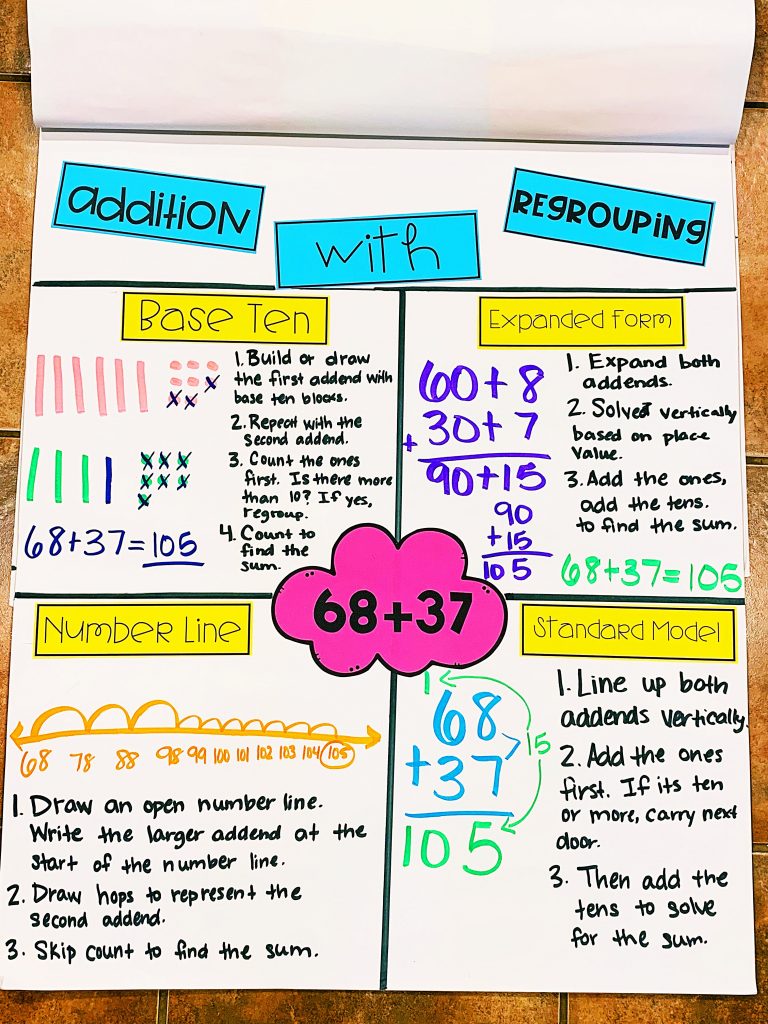 addition
with
REGROUPING
Base Ten
1. Build or draw
the first addend with
base ten blocks.
2. Repeat with the
second addend.
3. Count the ones
first. Is there more
than 10? If yes,
regroup.
4. Count to
find the
sum.
68+37=105
Expanded Form
60+8
+30+7
90+15
90
+15
105
1. Expand both
addends.
2. Solve vertically
based on place
value.
3. Add the ones,
add the tens.
to find the sum.
68+37=105
68+37
Number Line
68 78 88 98 99 100 101 102 103 104 105
1. Draw an open number line.
Write the larger addend at the
start of the number line.
2. Draw hops to represent the
second addend.
3. Skip count to find the sum.
Standard Model
1
68
+37
15
105
1. Line up both
addends vertically.
2. Add the ones
first. If its ten
or more, carry next
door.
3. Then add the
tens to solve
for the sum.